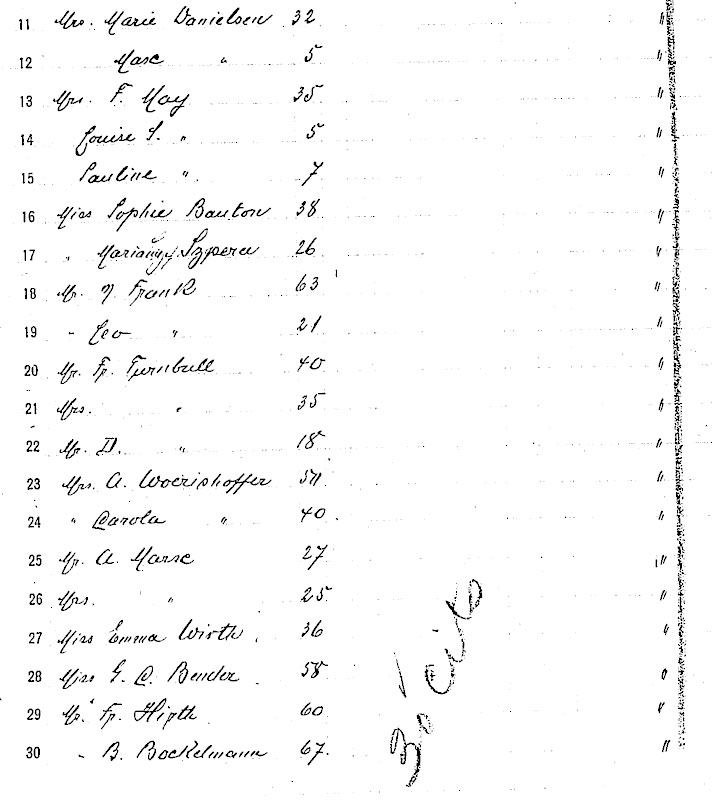 11 Mrs. Marie Danielsen 32 "
12 Marc " 5 "
13 Mrs. F. May 35 "
14 Louise S. " 5 "
15 Pauline " 7 "
16 Miss Sophie Bauton 38 "
17 " Szpera 26 "
18 Mr. N. Frank 63 "
19 " Leo " 21 "
20 Mr. Fr. Turnbull 40 "
21 Mrs. " 35 "
22 Mr. D. " 18 "
23 Mrs. A. Woerishoffer "
24 " Carola " 40 "
25 Mr. A. Marse 27 "
26 Mrs. " 25 "
27 Miss Emma Wirth 36 "
28 Miss G. C. Bender 58 "
29 Mr. Fr. Hirth 60 "
30 " B. Bockelmann 67 "
30 Cits